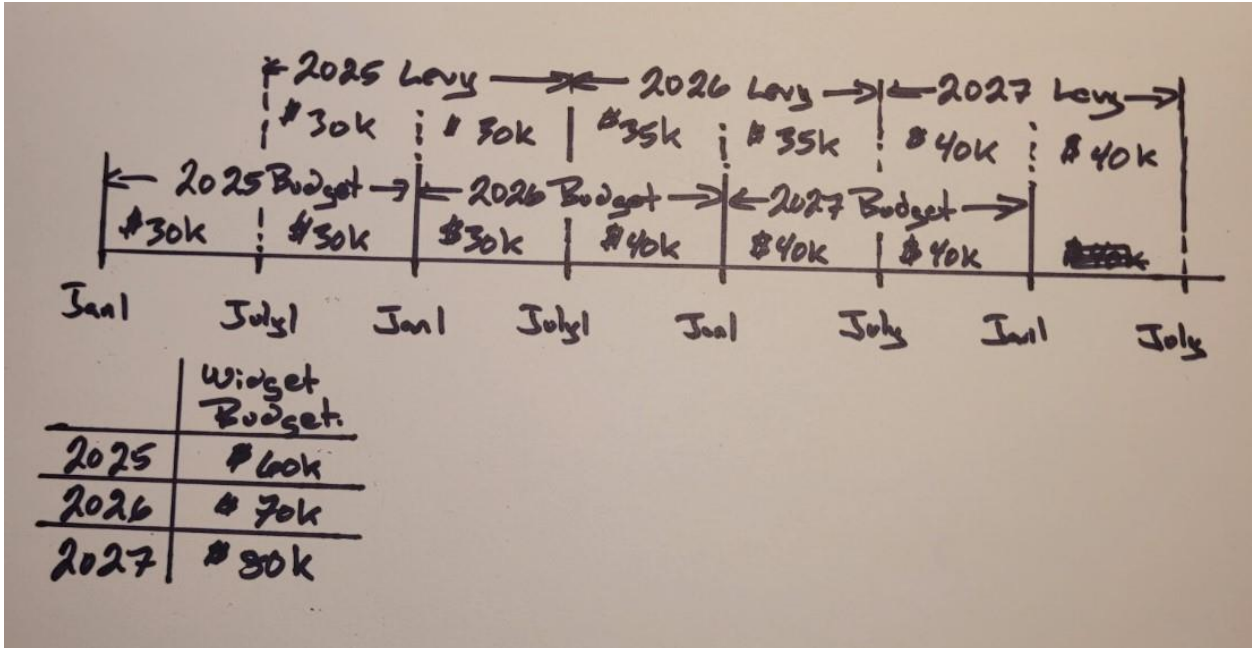 2025 Levy 2026 Levy 2027 Levy
$30k $30k $35k $35k $40k $40k
2025 Budget 2026 Budget 2027 Budget
$30k $30k $30k $40k $40k $40k
Jan 1 July 1 Jan 1 July 1 Jan 1 July Jan 1 July
Widget
Budget.
2025 $60k
2026 $70k
2027 $80k